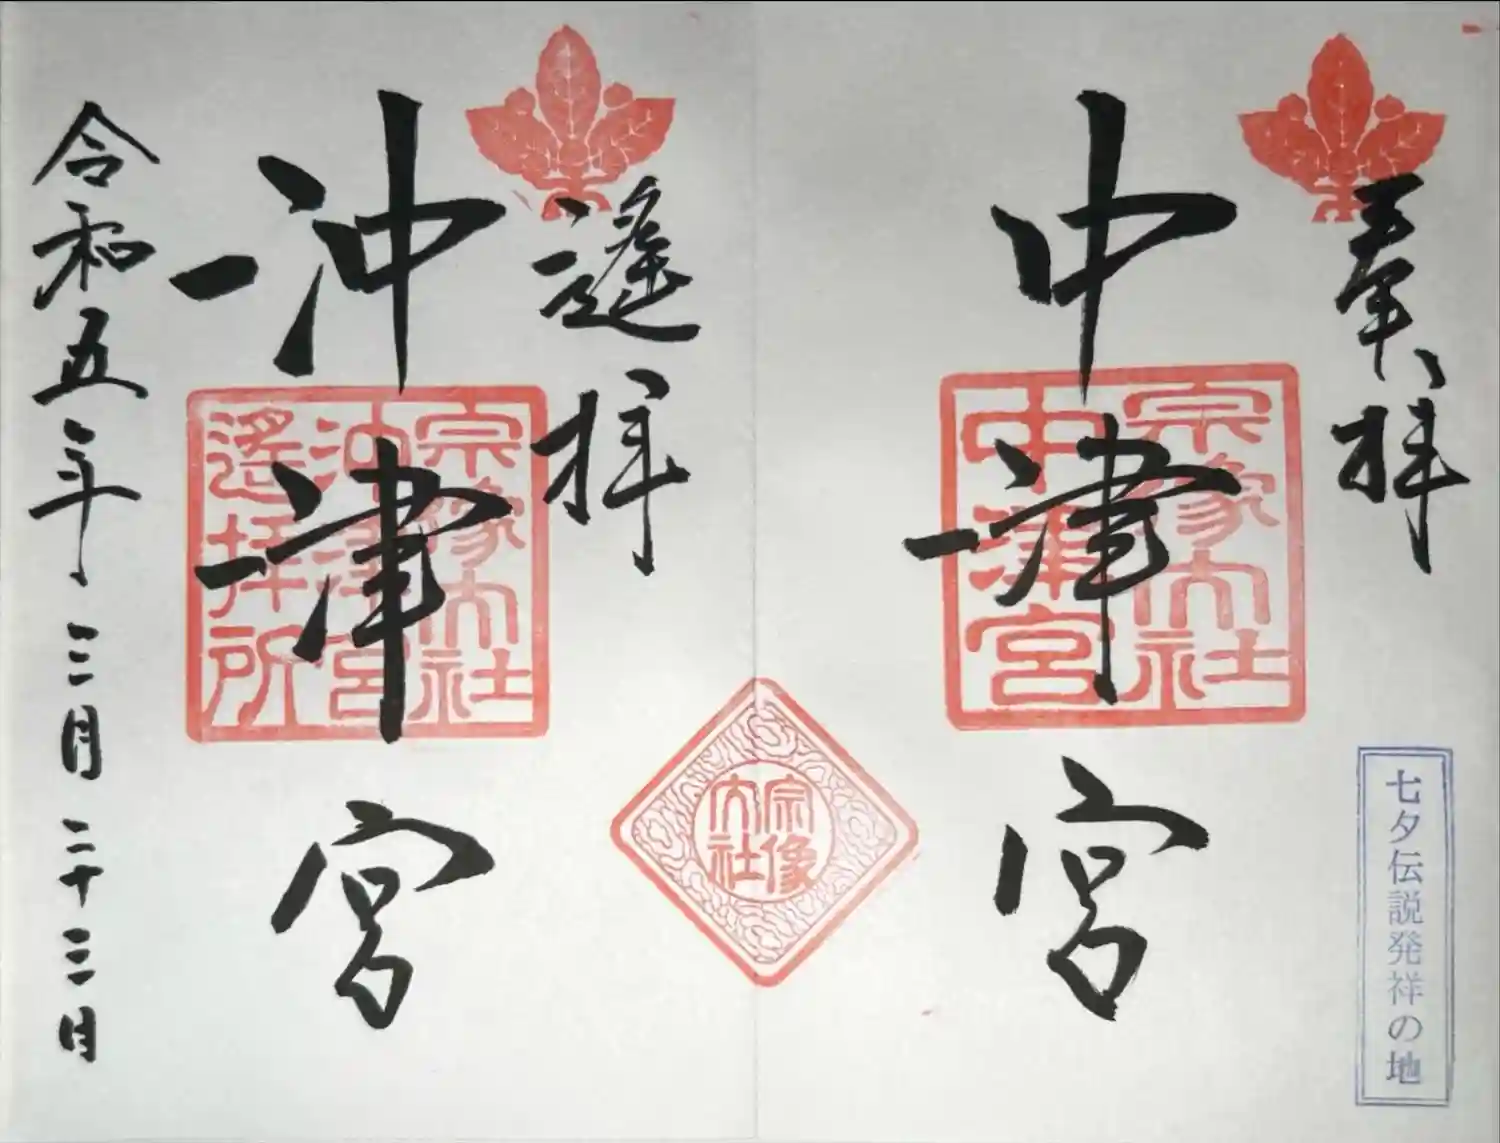 奉拝
中津宮
宗像大社
中津宮
七夕伝説発祥の地
宗像
大社
遥拝
沖津宮
宗像大社
沖津宮
遥拝所
令和五年三月二十三日